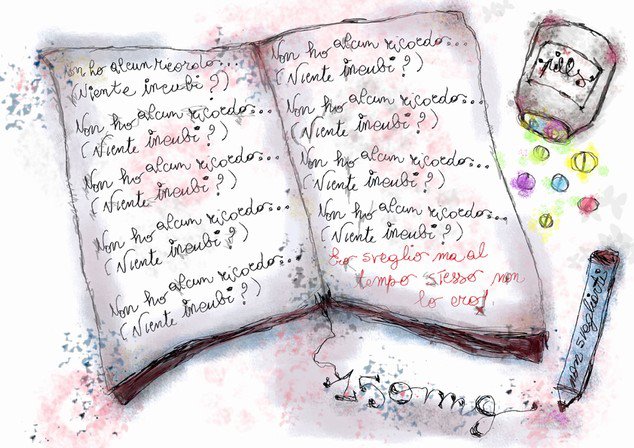 Non ho alcun ricordo...
(Niente incubi?)
Non ho alcun ricordo...
(Niente incubi?)
Non ho alcun ricordo...
(Niente incubi?)
Non ho alcun ricordo...
(Niente incubi?)
Non ho alcun ricordo...
(Niente incubi?)
Non ho alcun ricordo...
(Niente incubi?)
Non ho alcun ricordo...
(Niente incubi?)
Non ho alcun ricordo...
(Niente incubi?)
Non ho alcun ricordo...
(Niente incubi?)
Ero sveglio ma al
tempo stesso non
lo ero!
pills
non svegliarti
150mg